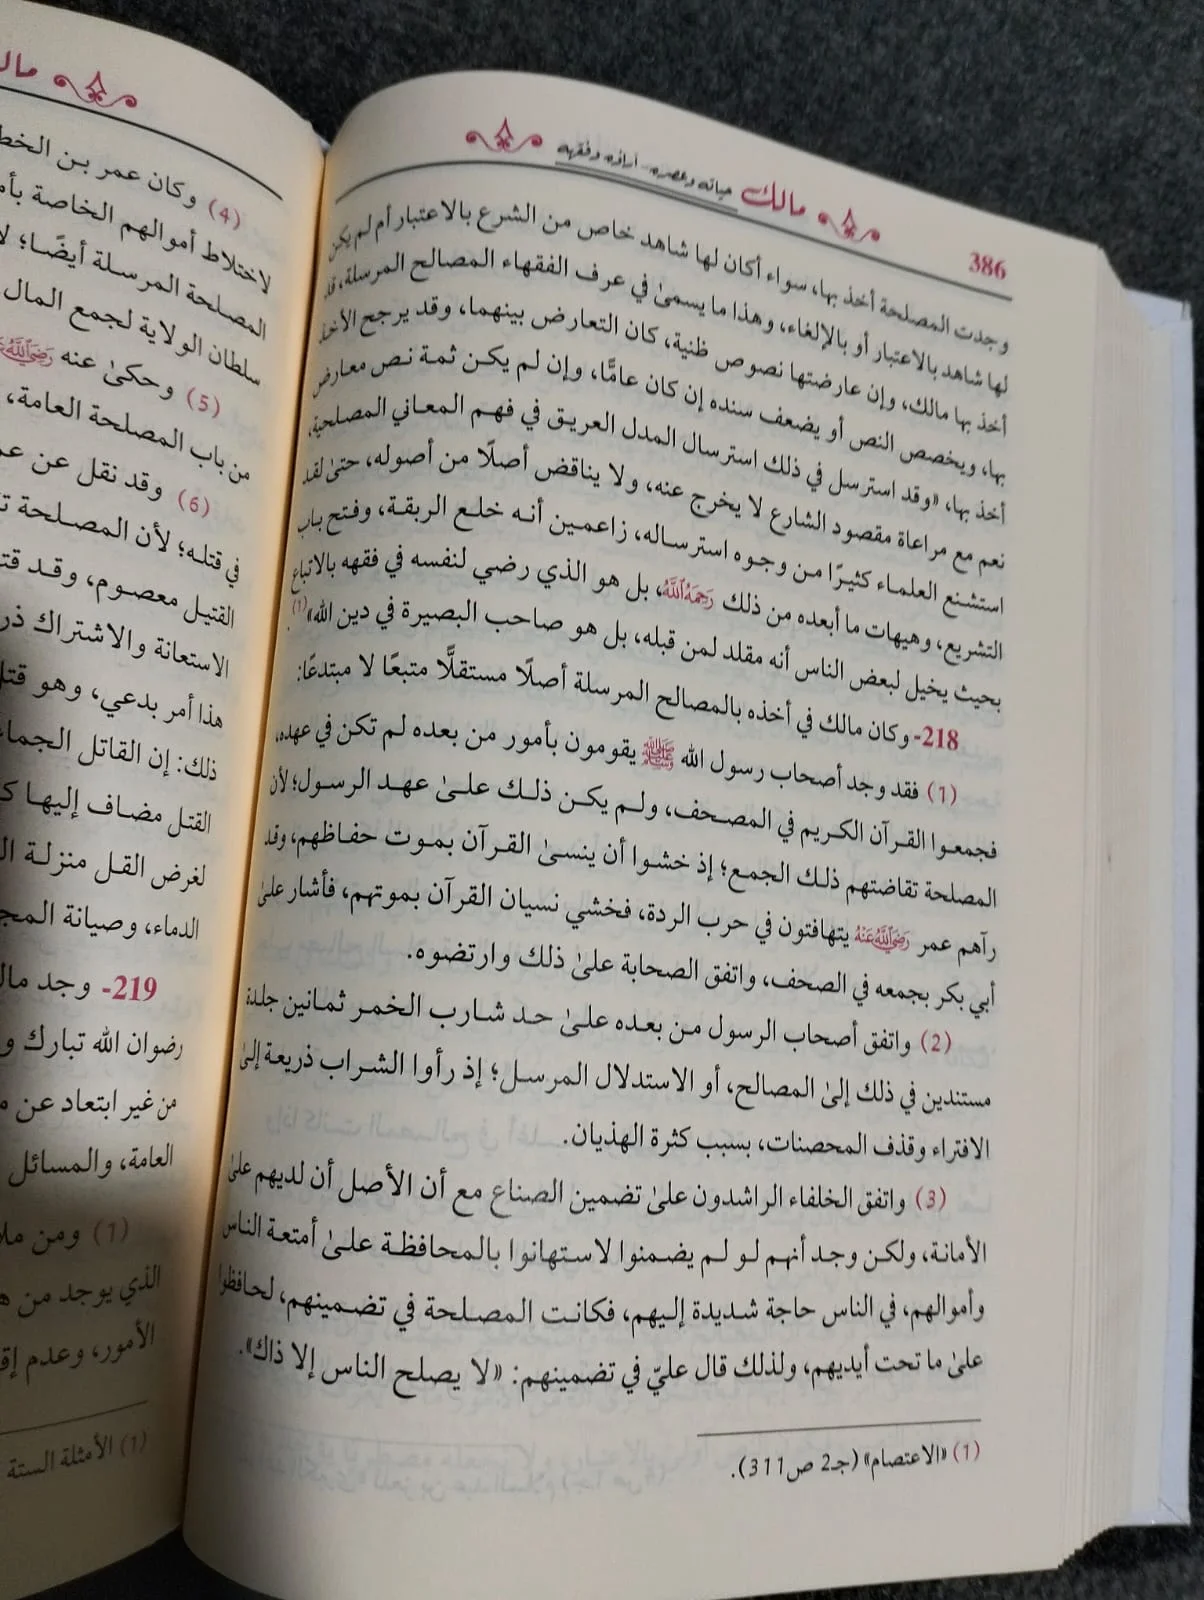 386
مالك حياته وعصره - آراؤه وفقهه
وجدت المصلحة أخذ بها، سواء أكان لها شاهد خاص من الشرع بالاعتبار أم لم يكن
لها شاهد بالاعتبار أو بالإلغاء، وهذا ما يسمىٰ في عرف الفقهاء المصالح المرسلة، قد
أخذ بها مالك، وإن عارضتها نصوص ظنية، كان التعارض بينهما، وقد يرجح الأخذ
بها، ويخصص النص أو يضعف سنده إن كان عامًّا، وإن لم يكن ثمة نص معارض
أخذ بها، «وقد استرسل في ذلك استرسال المدل العريق في فهم المعاني المصلحية،
نعم مع مراعاة مقصود الشارع لا يخرج عنه، ولا يناقض أصلًا من أصوله، حتىٰ لقد
استشنع العلماء كثيرًا من وجوه استرساله، زاعمين أنه خلع الربقة، وفتح باب
التشريع، وهيهات ما أبعده من ذلك رَحِمَهُ ٱللَّهُ، بل هو الذي رضي لنفسه في فقهه بالاتباع
بحيث يخيل لبعض الناس أنه مقلد لمن قبله، بل هو صاحب البصيرة في دين الله»(1).
218- وكان مالك في أخذه بالمصالح المرسلة أصلًا مستقلًّا متبعًا لا مبتدعًا:
(1) فقد وجد أصحاب رسول الله ﷺ يقومون بأمور من بعده لم تكن في عهده،
فجمعوا القرآن الكريم في المصحف، ولم يكن ذلك علىٰ عهد الرسول؛ لأن
المصلحة تقاضتهم ذلك الجمع؛ إذ خشوا أن ينسىٰ القرآن بموت حفاظهم، وقد
رآهم عمر رَضِيَ ٱللَّهُ عَنْهُ يتهافتون في حرب الردة، فخشي نسيان القرآن بموتهم، فأشار علىٰ
أبي بكر بجمعه في الصحف، واتفق الصحابة علىٰ ذلك وارتضوه.
(2) واتفق أصحاب الرسول من بعده علىٰ حد شارب الخمر ثمانين جلدة
مستندين في ذلك إلىٰ المصالح، أو الاستدلال المرسل؛ إذ رأوا الشراب ذريعة إلىٰ
الافتراء وقذف المحصنات، بسبب كثرة الهذيان.
(3) واتفق الخلفاء الراشدون علىٰ تضمين الصناع مع أن الأصل أن لديهم علىٰ
الأمانة، ولكن وجد أنهم لو لم يضمنوا لاستهانوا بالمحافظة علىٰ أمتعة الناس
وأموالهم، في الناس حاجة شديدة إليهم، فكانت المصلحة في تضمينهم، لحافظوا
علىٰ ما تحت أيديهم، ولذلك قال عليّ في تضمينهم: «لا يصلح الناس إلا ذاك».
(1) «الاعتصام» (جـ2 ص311).
(4) وكان عمر بن
لاختلاط أموالهم الخاصة
المصلحة المرسلة أيضًا؛
سلطان الولاية لجمع المال
(5) وحكىٰ عنه
من باب المصلحة العامة،
(6) وقد نقل عن
في قتله؛ لأن المصلحة
القتيل معصوم، وقد
الاستعانة والاشتراك
هذا أمر بدعي، وهو
ذلك: إن القاتل
القتل مضاف إليها
لغرض القل منزلة
الدماء، وصيانة
219- وجد
رضوان الله تبارك
من غير ابتعاد عن
العامة، والمسائل
(1) ومن
الذي يوجد من
الأمور، وعدم
(1) الأمثلة الستة